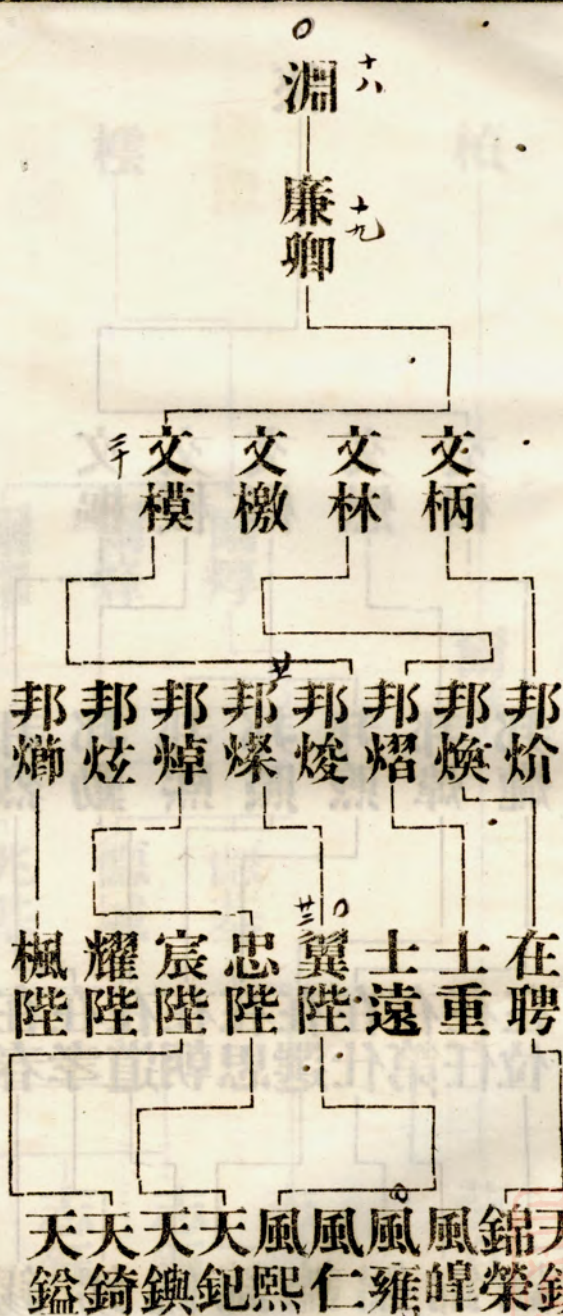 淵
十八
廉卿
十九
文柄
文林
文檄
文模
二十
邦炌
邦煥
邦熠
邦焌
邦燦
邦焯
邦炫
邦
在聘
士重
士遠
翼陛
忠陛
宸陛
耀陛
楓陛
天
錦榮
風
風雍
風仁
風熙
天
天
天錡
天鎰